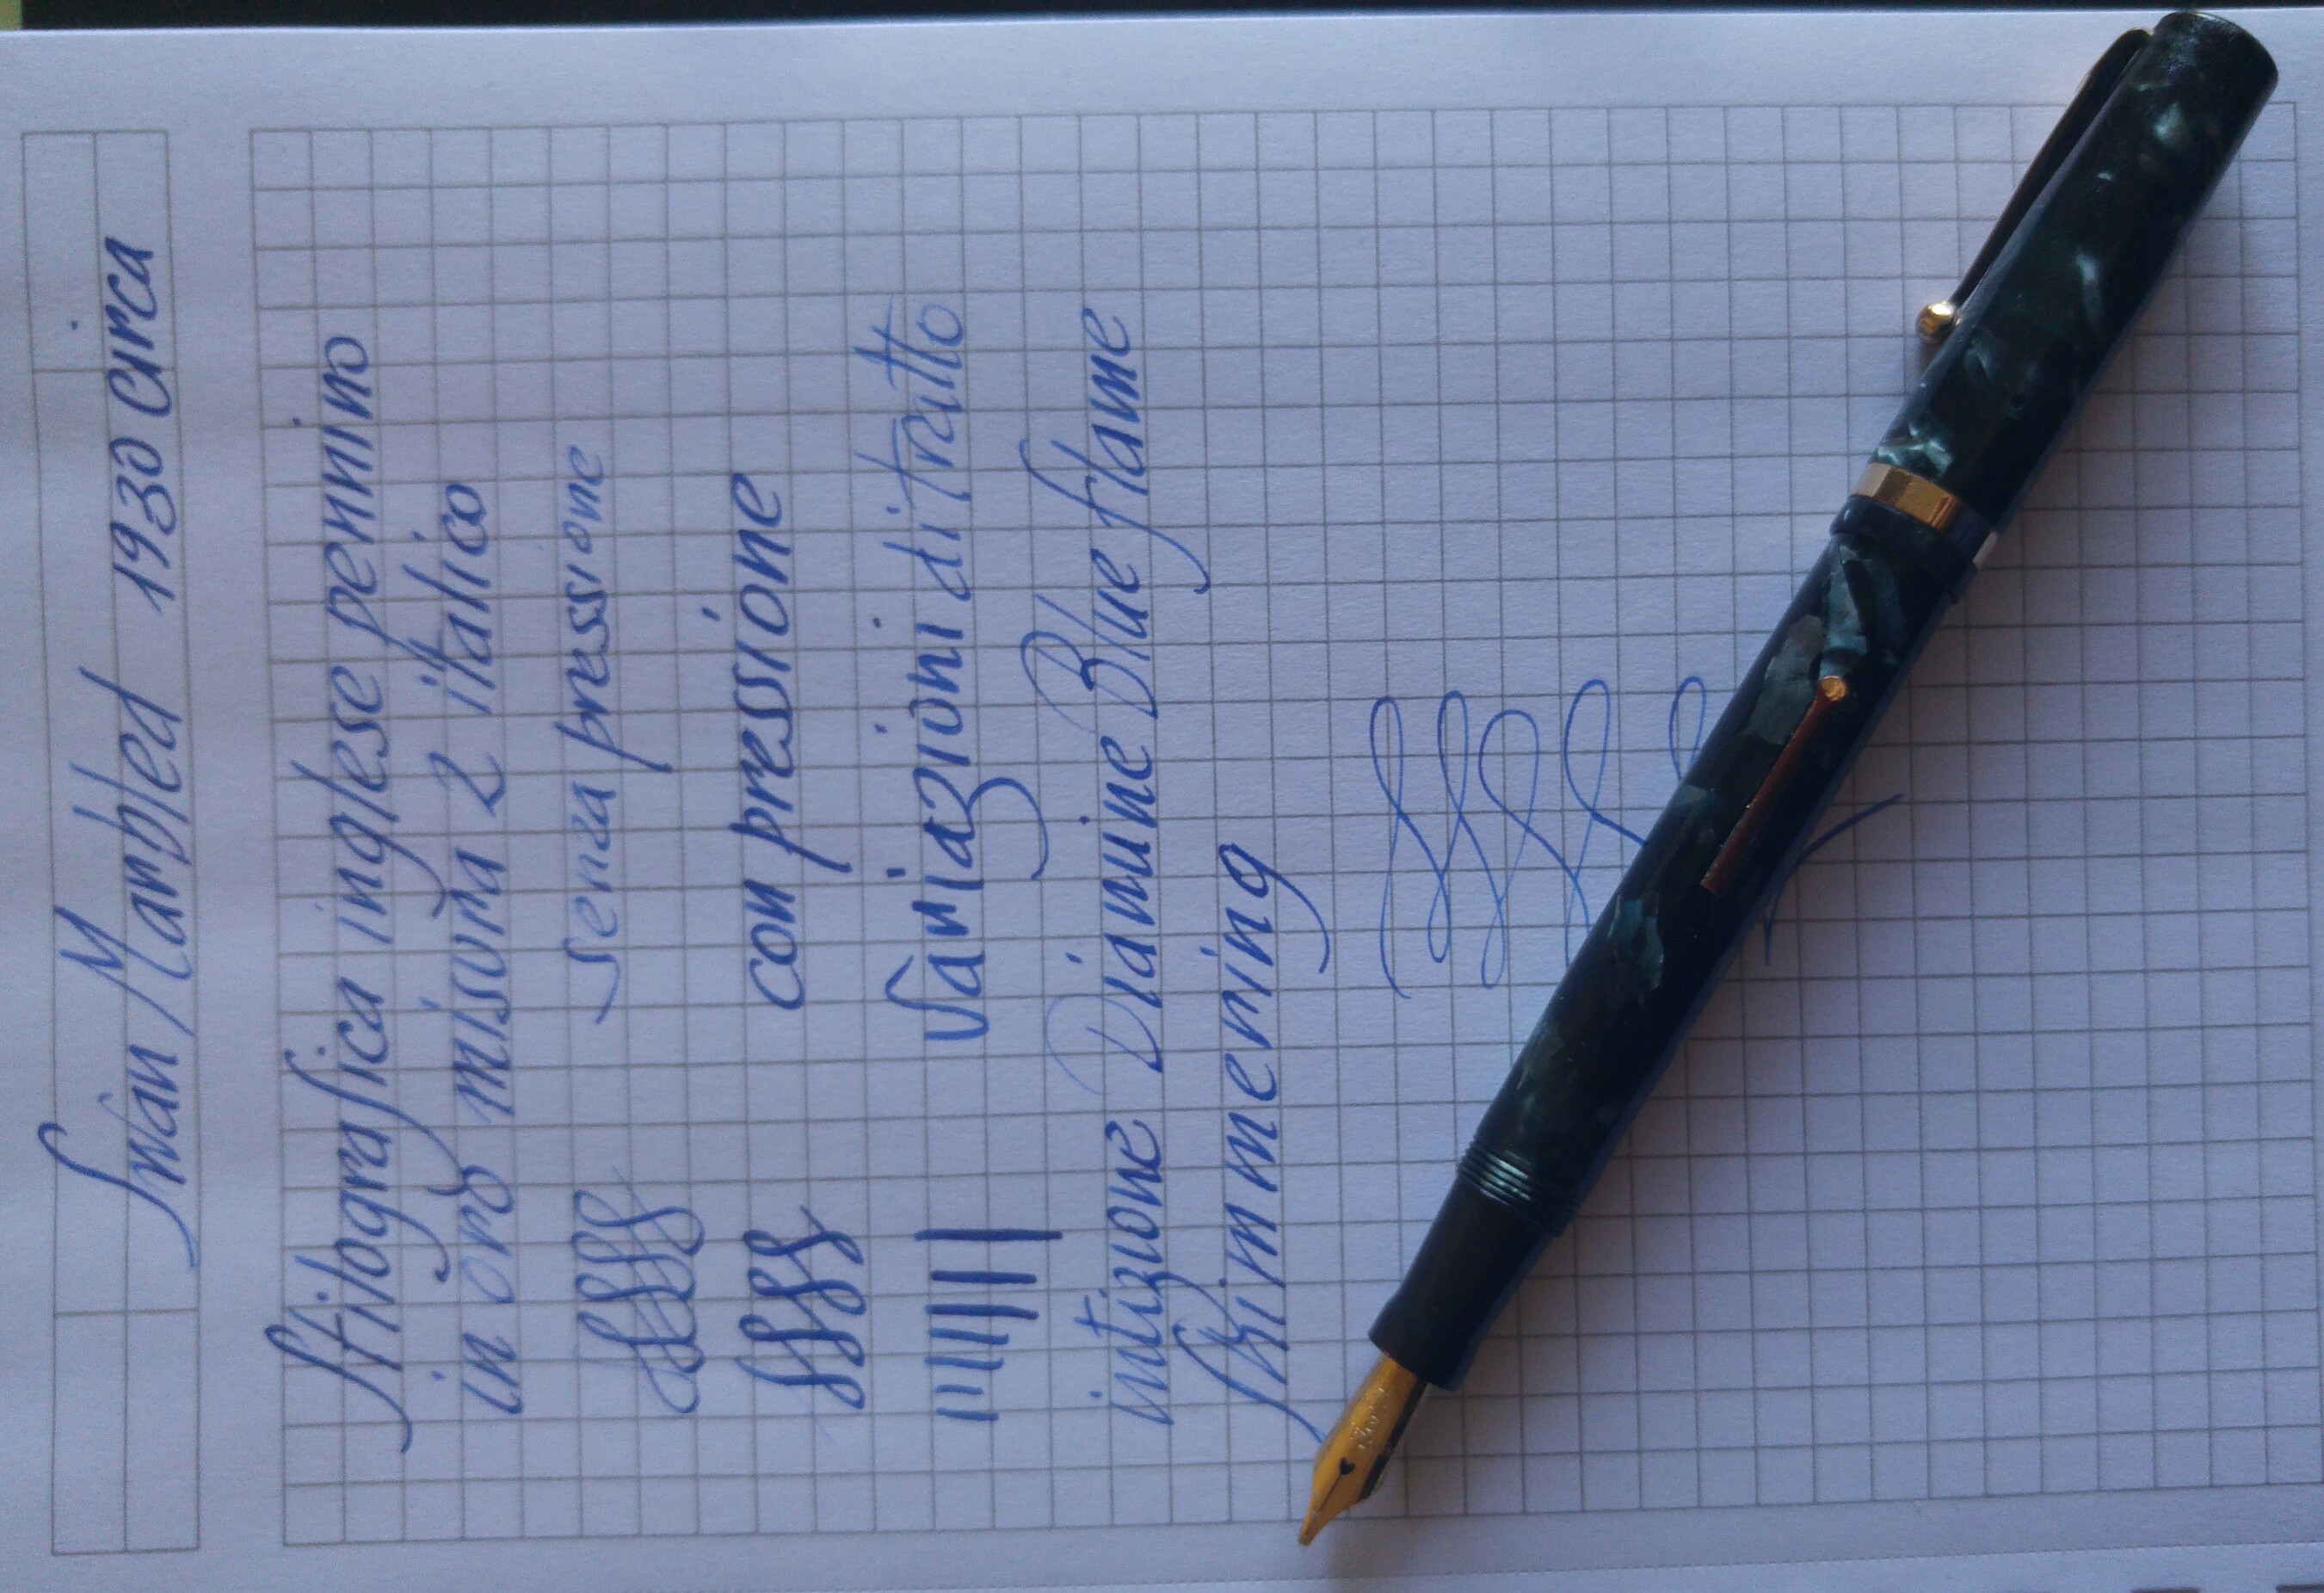 Swan Marbled 1930 circa
Stilografica inglese pennino
in oro misura 2 italico
senza pressione
con pressione
Variazioni di tratto
intizione Diamine Blue flame
Shimmering